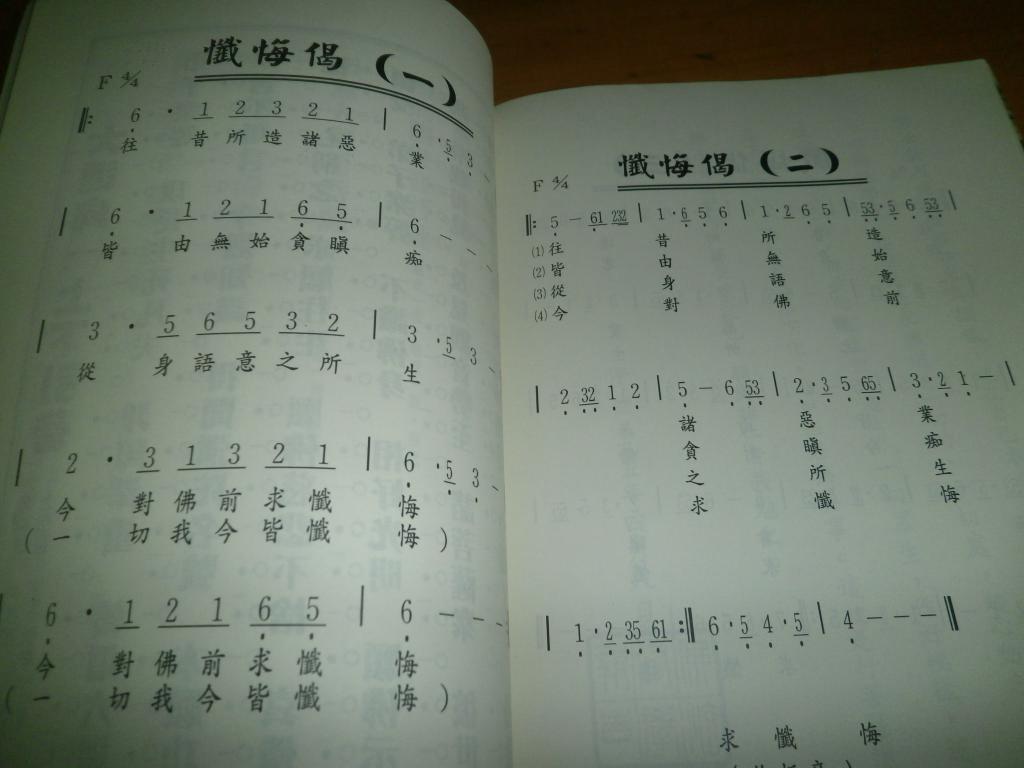 懺悔偈（一）
F 4/4
‖: 6 · 1 2 3 2 1 | 6 · 5 3 -
往 昔所造諸惡 業
| 6 · 1 2 1 6 5 | 6 - -
皆 由無始貪瞋 痴
| 3 · 5 6 5 3 2 | 3 · 5 3 -
從 身語意之所 生
| 2 · 3 1 3 2 1 | 6 · 5 3 -
今 對佛前求懺 悔
(一 切我今皆懺 悔)
| 6 · 1 2 1 6 5 | 6 - -
今 對佛前求懺 悔
(一 切我今皆懺 悔)
懺悔偈（二）
F 4/4
‖: 5 - 61 232 | 1 · 6 5 6 | 1 · 2 6 5 | 53 · 5 6 53 |
(1) 往 昔 所 造
(2) 皆 由 無 始
(3) 從 身 語 意
(4) 今 對 佛 前
| 2 32 1 2 | 5 - 6 53 | 2 · 3 5 65 | 3 · 2 1 - |
諸 惡 業
貪 瞋 痴
之 所 生
求 懺 悔
| 1 · 2 35 61 :‖ 6 · 5 4 · 5 | 4 - - - ‖
求 懺 悔